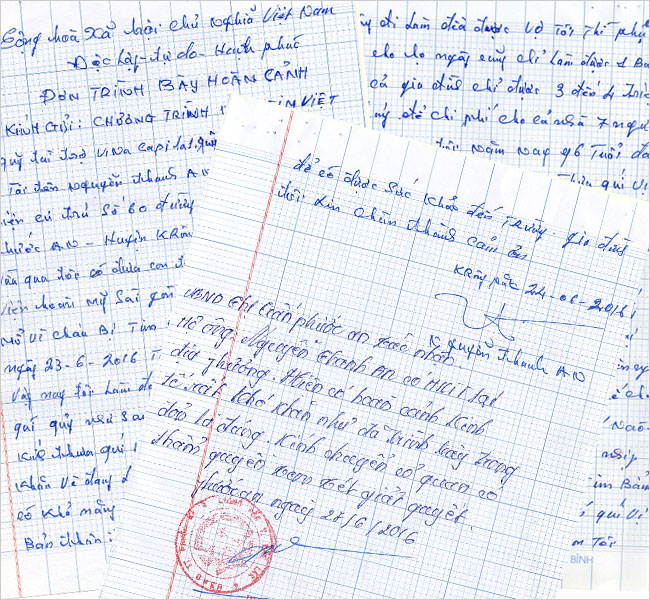 Cộng hoà Xã hội chủ nghĩa Việt Nam
Độc lập - tự do - Hạnh phúc
ĐƠN TRÌNH BÀY HOÀN CẢNH
KÍNH GỬI: CHƯƠNG TRÌNH TIN VIỆT
quỹ tài trợ Vina Capital, quỹ
Tôi tên Nguyễn Thanh AN
Hiện cư trú số 60 đường
Phước AN - Huyện KRông
vừa qua tôi có đưa con t
viện hoàn Mỹ Sài gòn
Mổ vì cháu Bị Tim
ngày 23-6-2016 T
vậy nay tôi làm đơ
quí quỹ
Kính thưa quí
khăn vì
có khả năng
Bản thân:
đi làm
được vợ Tôi thì phụ
cho ngày cũng chỉ làm được 1 Ba
cả gia đình chỉ được 3 đến 4 triệ
để chi phí cho cả nhà 7 ngư
năm nay 96 Tuổi đa
quí vị
để có được sức khỏe đến trường. gia đình
tôi xin chân thành cảm ơn
KRông pắc 24-06-2016
Nguyễn Thanh AN
UBND thị trấn phước an xác nhận.
Hộ ông: Nguyễn Thanh AN có HKTT tại
địa phương. Hiện có hoàn cảnh kinh
tế rất khó khăn như đã trình bày trong
đơn là đúng. Kính chuyển cơ quan có
thẩm quyền xem xét giải quyết.
phước an ngày 28/6/2016
im Bẩm
quí Vị
m Tôi
BÌNH